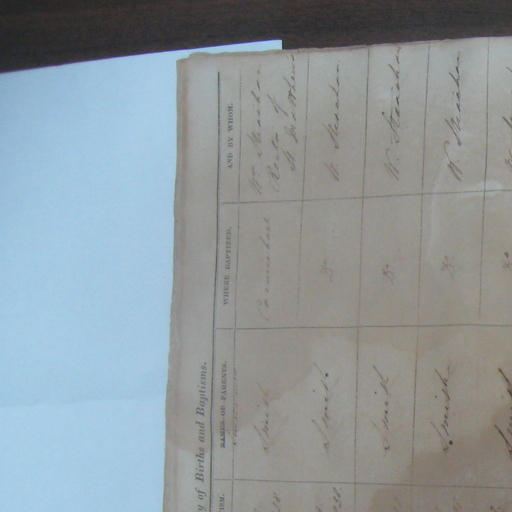 y of Births and Baptisms.
ISM. NAMES OF PARENTS. WHERE BAPTIZED. AND BY WHOM.
Smith Wm Strachan
38 Rector of
St Matthews
Smith Do W. Strachan
838
Smith Do W. Strachan
Smith Do W. Strachan
Smith Do